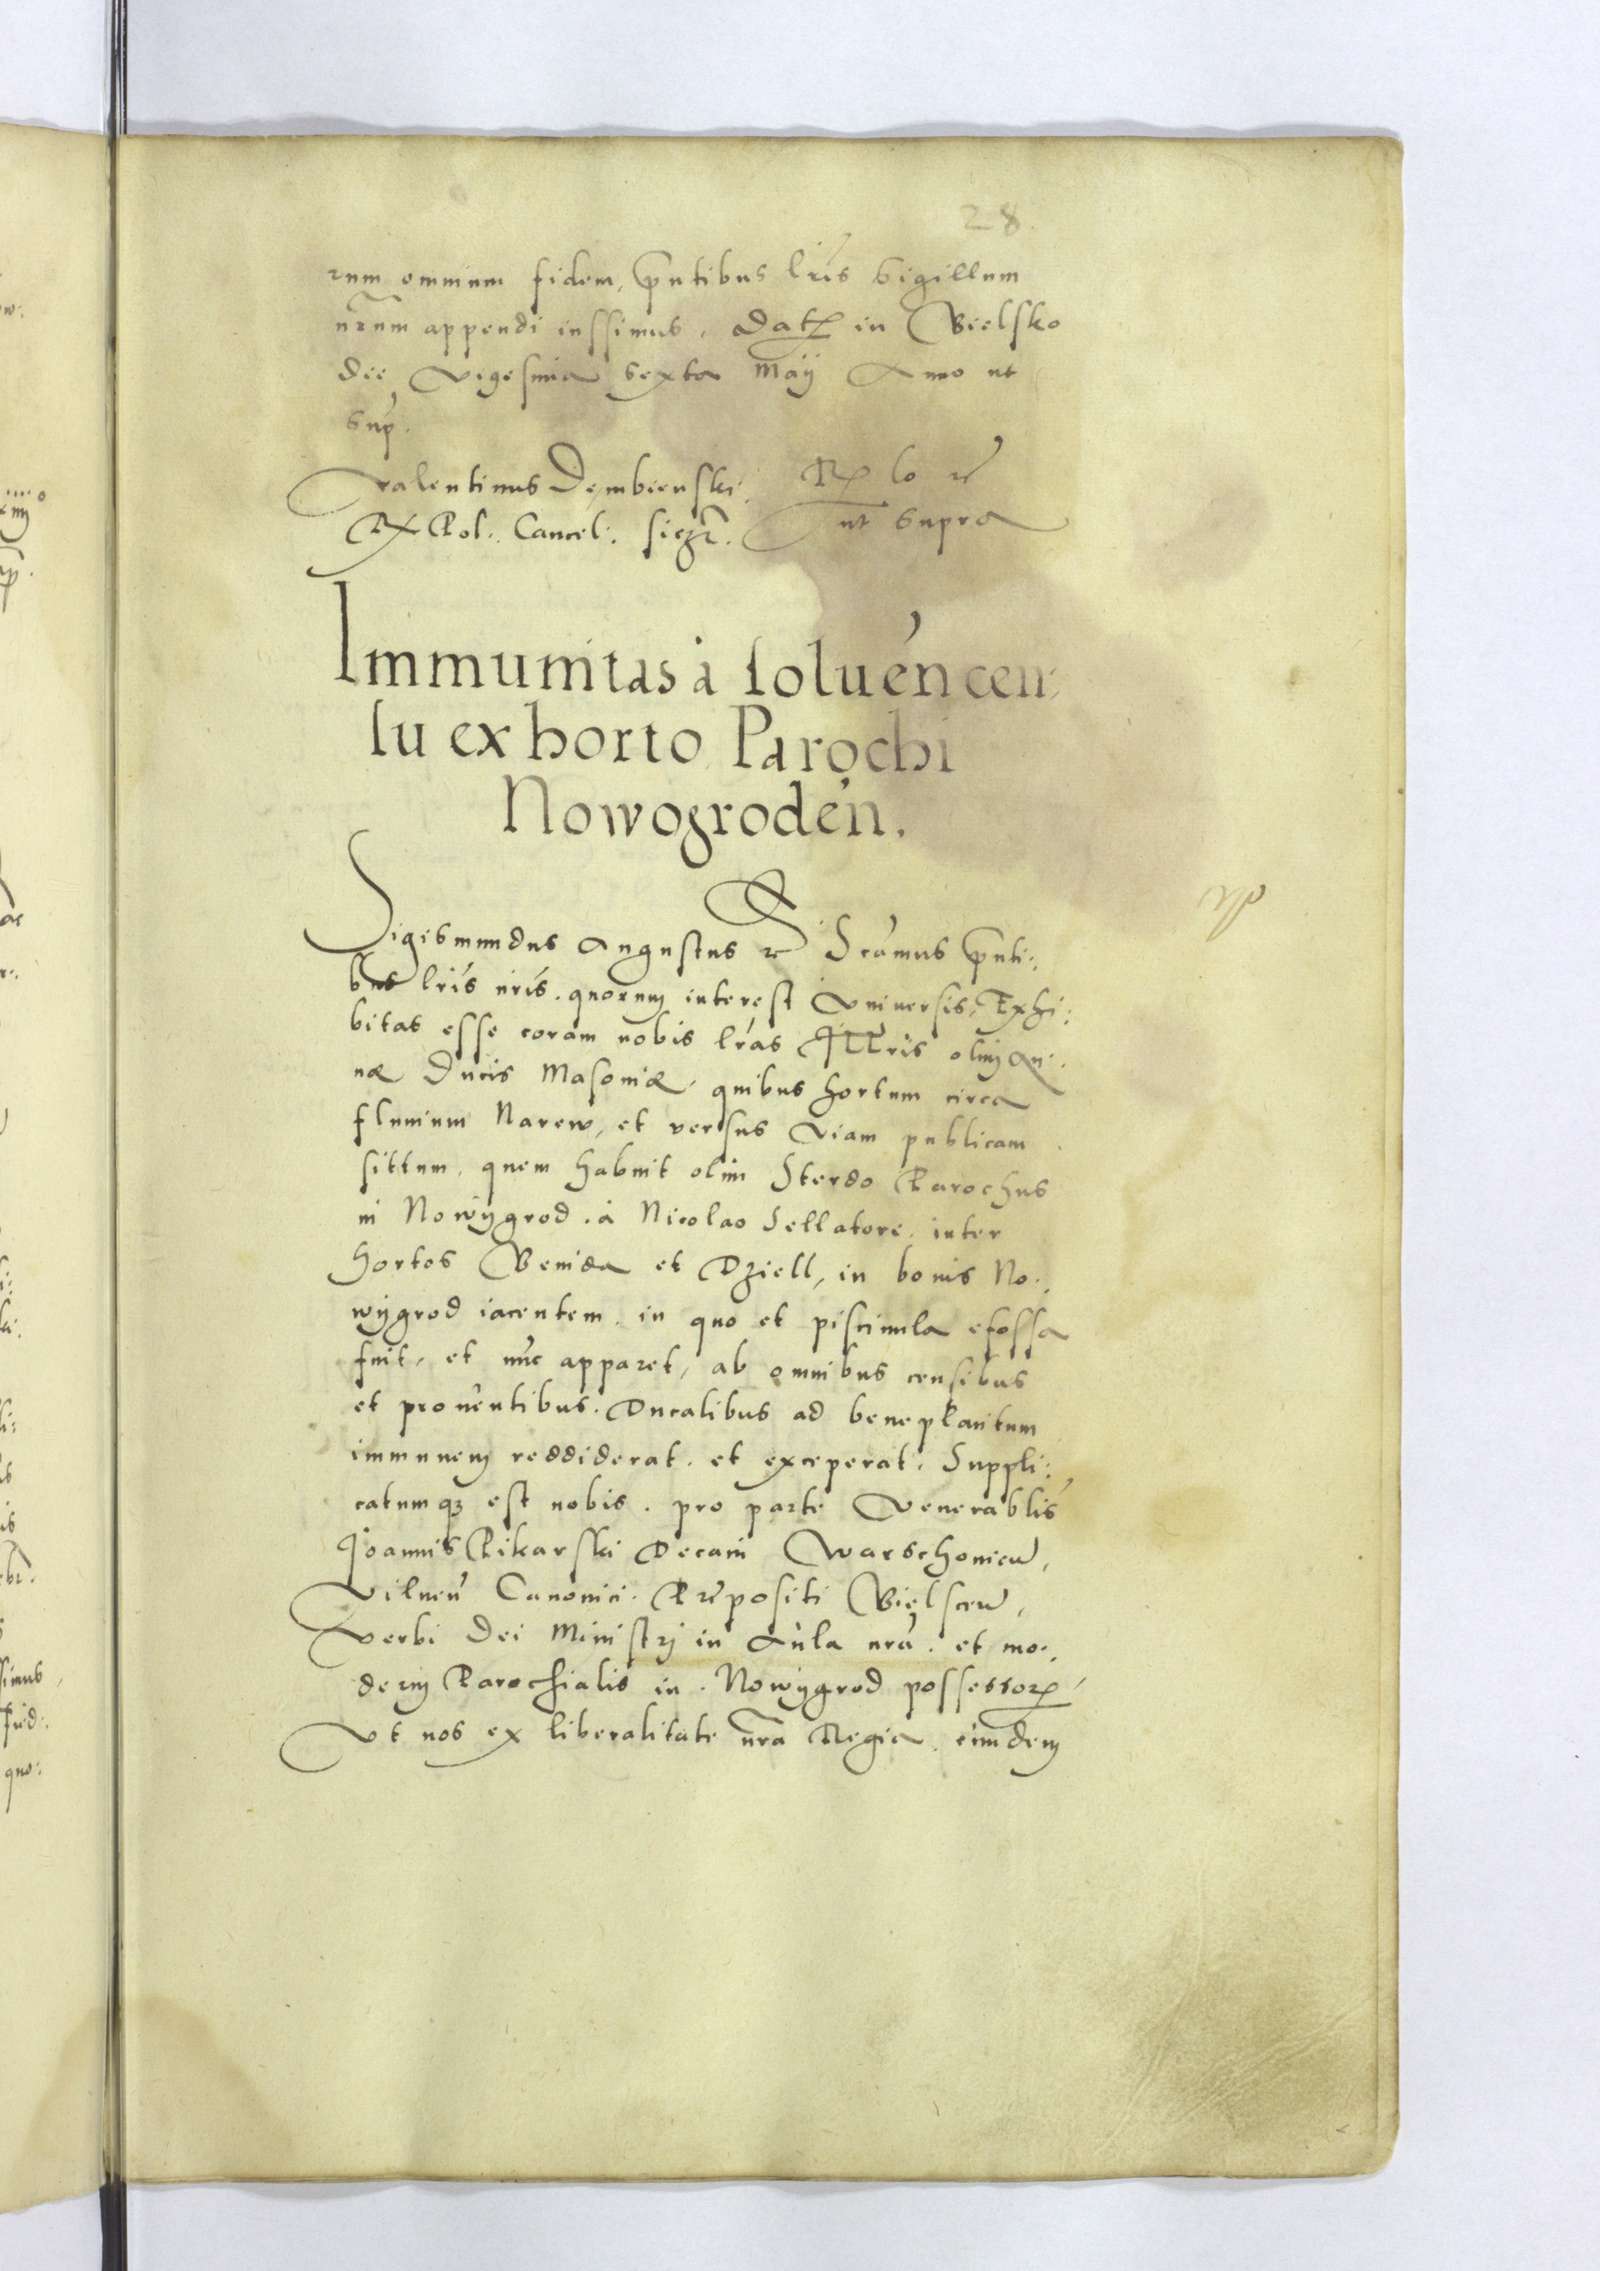 28.
rum omnium fidem, pntibus lris Sigillum
nrum appendi iussimus. Dat in Bielsko
die Vigesima Sexta Maij Anno ut
Sup.
Valentinus Dembienski. Rx lo rē
RX Pol. Cancel: ut supra
Immunitas à soluen cen:
su ex horto Parochi
Nowogroden.
Sigismundus Augustus rē Scamus pnti:
bus lris nris. quorum interest Vniversis, Exhi:
bitas esse coram nobis lras Illris olim An:
næ Ducis Masoniæ, quibus hortum circa
fluuium Narew, et versus Viam publicam
sittum, quem habuit olim Sterdo Parochus
in Nowijgrod. à Nicolao Sellatore, inter
hortos Benida et Dziell, in bonis No:
wijgrod iacentem, in quo et piscinula efossa
fuit, et nuc apparet, ab omnibus censibus
et prouentibus. Ducalibus ad beneplacitum
immunem reddiderat. et exceperat. Suppli:
catumq3 est nobis. pro parte Venerablis
Ioannis Pikarski Decani Warschouien,
Vilnen Canonici. Præpositi Bielscen,
Verbi Dei Ministrj in Aula nra. et mo:
dernj Parochialis in. Nowijgrod possessor
Vt nos ex liberalitate nra Regia. eundem